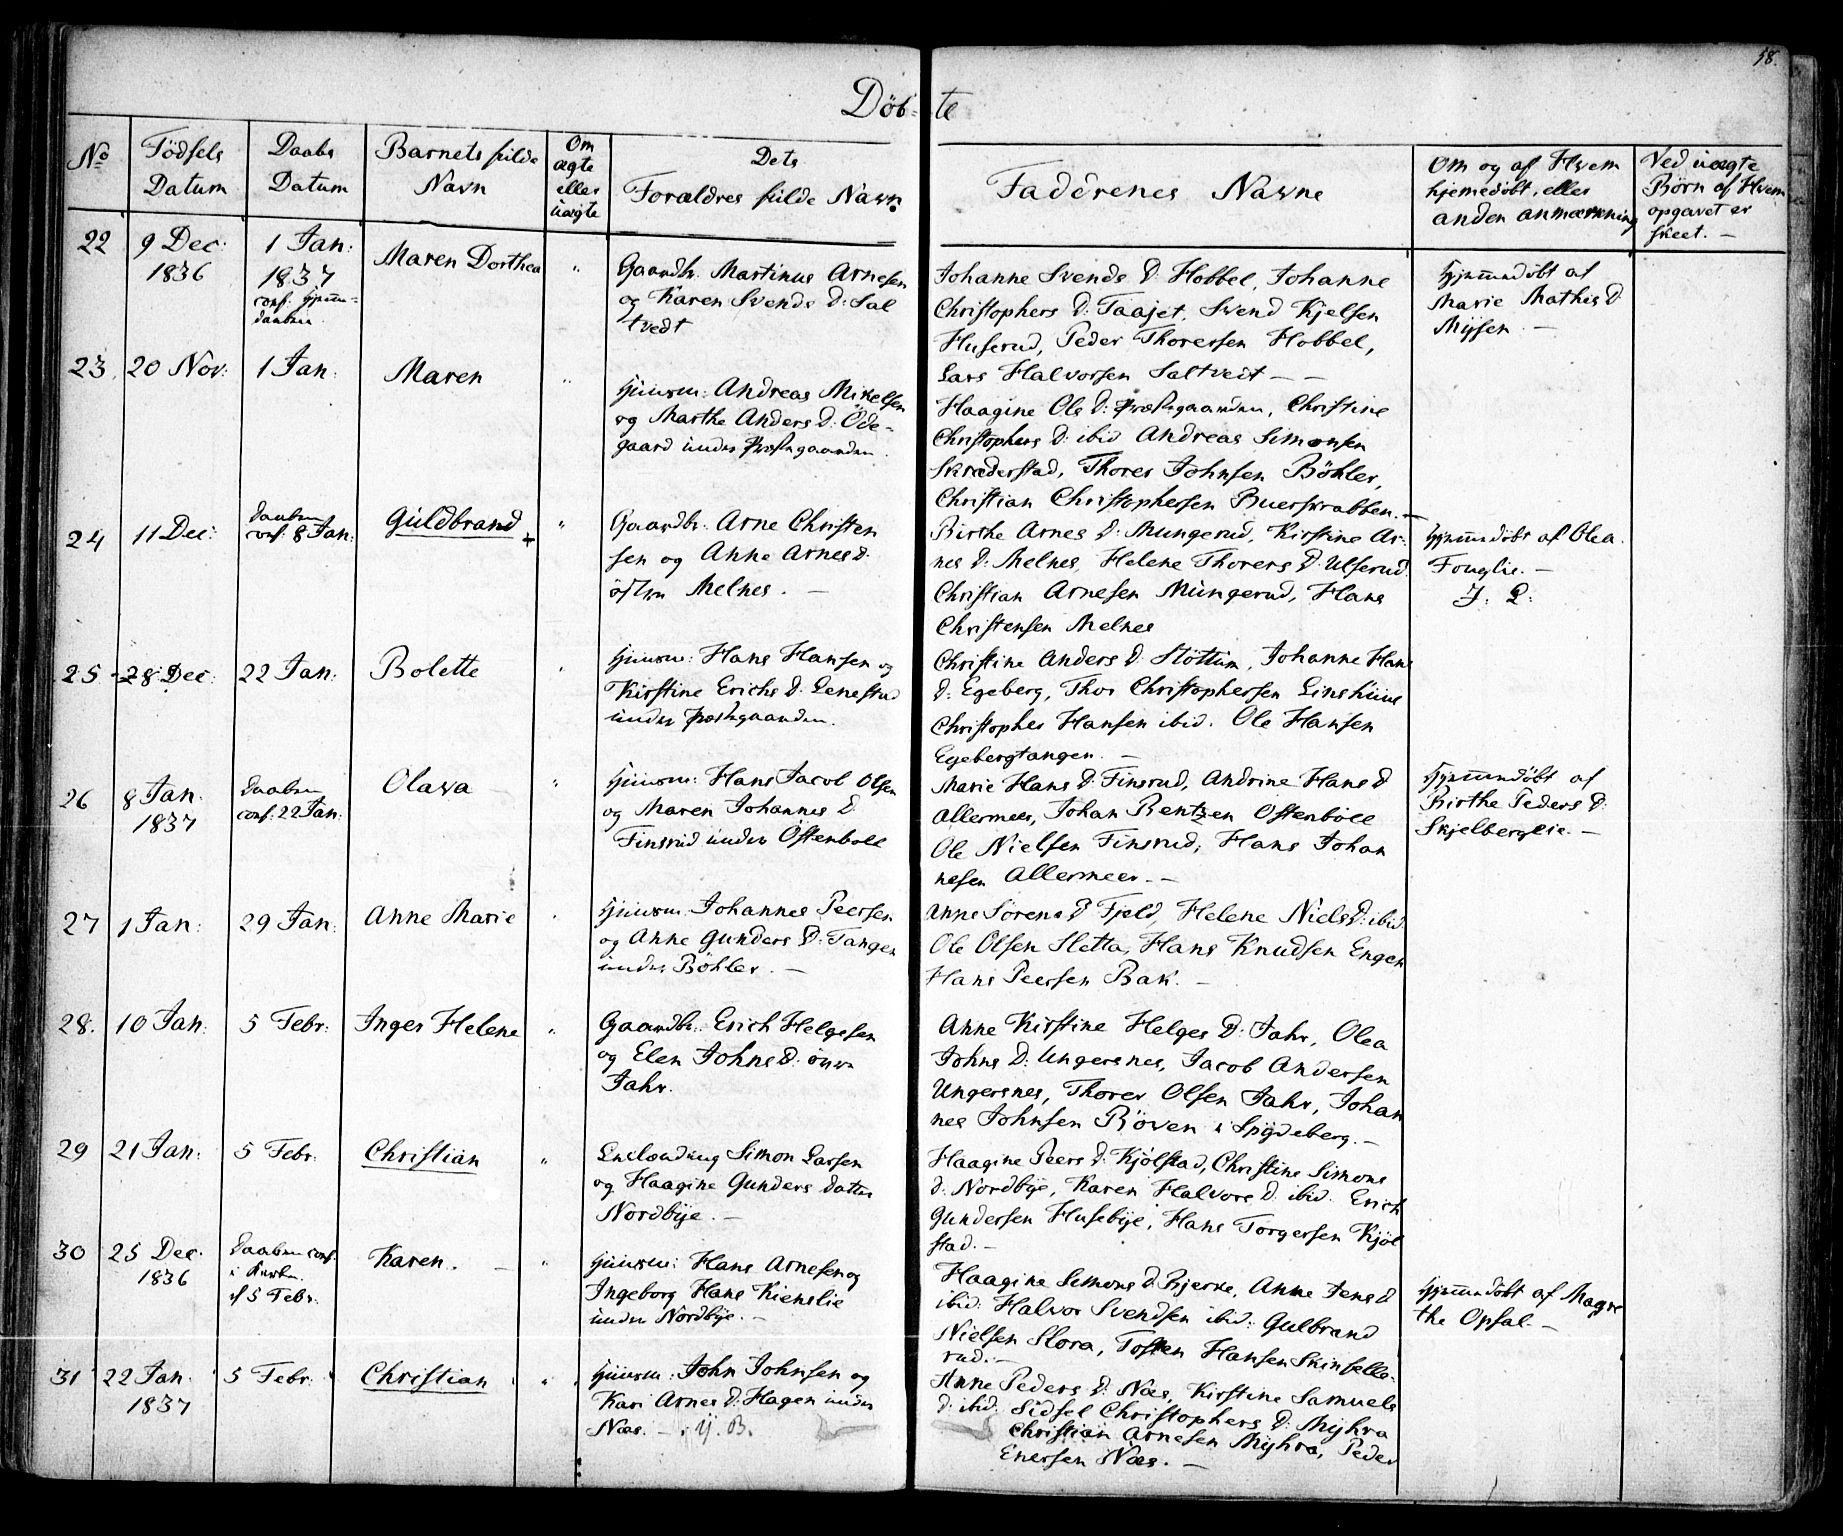 58.
Döb-te
No
Födsels Datum
Daabs Datum
Barnets fulde Navn
Om ægte eller uægte
Dets Forældres fulde Navn
Faddrenes Navne
Om og af Hvem hjemedöbt, eller anden anmærkning
Ved uægte Börn af Hvem opgavet er skeet. —
22
9 Dec:
1836
1 Jan:
1837
conf. Hjemme-
daaben
Maren Dorthea
"
Gaardbr. Martinus Arnesen
og Karen Svends D: Sal
tvedt
Johanne Svends D. Hobbel, Johanne
Christophers D: Taajet, Svend Kjelsen
Huserud, Peder Thoresen Hobbel,
Lars Halvorsen Saltveit — —
Hjemmedöbt af
Marie Mathis D
Mijsen —
23
20 Nov:
1 Jan:
Maren
"
Huusm: Andreas Mikelsen
og Marthe Anders D: Öde-
gaard under Præstegaarden.
Haagine Ole D: Præstegaarden, Christine
Christophers D: ibid Andreas Simonsen
Skræderstad, Thorer Johnsen Böhler,
Christian Christophersen Buerskrabben. —
24
11 Dec:
daaben
conf. 8 Jan:
Guldbrand
+
"
Gaardbr. Arne Christen
sen og Anne Arnes D.
östre Melnes. —
Birthe Arnes D: Mungerud, Kirstine Ar-
nes D: Melnes, Helene Thorers D: Ulserud.
Christian Arnesen Mungerud, Hans
Christensen Melnes
Hjemmedöbt af Olea
Fouglie. —
25
28 Dec:
22 Jan:
Bolette
Huusm: Hans Hansen og
Kirstine Erichs D: Lenestad
under Præstegaarden.
Christine Anders D: Slöttum, Johanne Hans
D: Egeberg, Thor Christophersen Linshuus
Christopher Hansen ibid. Ole Hansen
Egebergtangen. —
26
8 Jan.
1837
Daaben
conf. 22 Jan:
Olava
"
Huusm: Hans Jacob Olsen
og Maren Johannes D.
Finsrud under Östenbøle
Marie Hans D: Finsrud, Andrine Hans D
Allermeer, Johan Bentzen Ostenböle
Ole Nielsen Finsrud, Hans Johan
nesen Allermeer. —
Hjemmedöbt af
Birthe Peders D:
Skjelberglie. —
27
1 Jan:
29 Jan:
Anne Marie
Huusm. Johannes Peersen
og Anne Gunders D: Tangen
under Böhler. —
Anne Sörens D Fjeld, Helene Niels D: ibid.
Ole Olsen Sletta, Hans Knudsen Engen
Hans Peersen Bak. —
28.
10 Jan:
5 Febr:
Inger Helene
"
Gaardbr. Erich Helgesen
og Elen Johns D: övre
Jahr.
Anne Kirstine Helges D: Jahr, Olea
Johns D: Ungersnes, Jacob Andersen
Ungersnes, Thorer Olsen Jahr, Johan
nes Johnsen Röven i Spydeberg. —
29
21 Jan:
5 Febr.
Christian
"
Simon Larsen
og Haagine Gunders datter
Nordbije. —
Haagine Peers D: Kjölstad, Christine Simons
D: Nordbije, Karen Halvors D. ibid. Erich
Gundersen Husebije, Hans Torgersen Kjöl
stad. —
30
25 Dec:
1836
Daaben conf.
i Kirken
d 5 Febr:
Karen. —
"
Huusm: Hans Arnesen og
Ingeborg Hans Kienslie
under Nordbije. —
Haagine Simons D Bjerke, Anne Jens D
ibid: Halvor Svendsen ibid: Gulbrand
Nielsen Slora, Tosten Hansen Skinsello-
rud. —
Hjemmedöbt af Magre
the Opsal. —
31
22 Jan.
1837
5 Febr:
Christian
"
Huusm: John Johnsen og
Kari Arnes D: Hagen under
Næs. —
Anne Peders D: Næs, Kirstine Samuels
D: ibid: Sidsel Christophers D: Mijhra
Christian Arnesen Mijhra, Peder
Enersen Næs. —